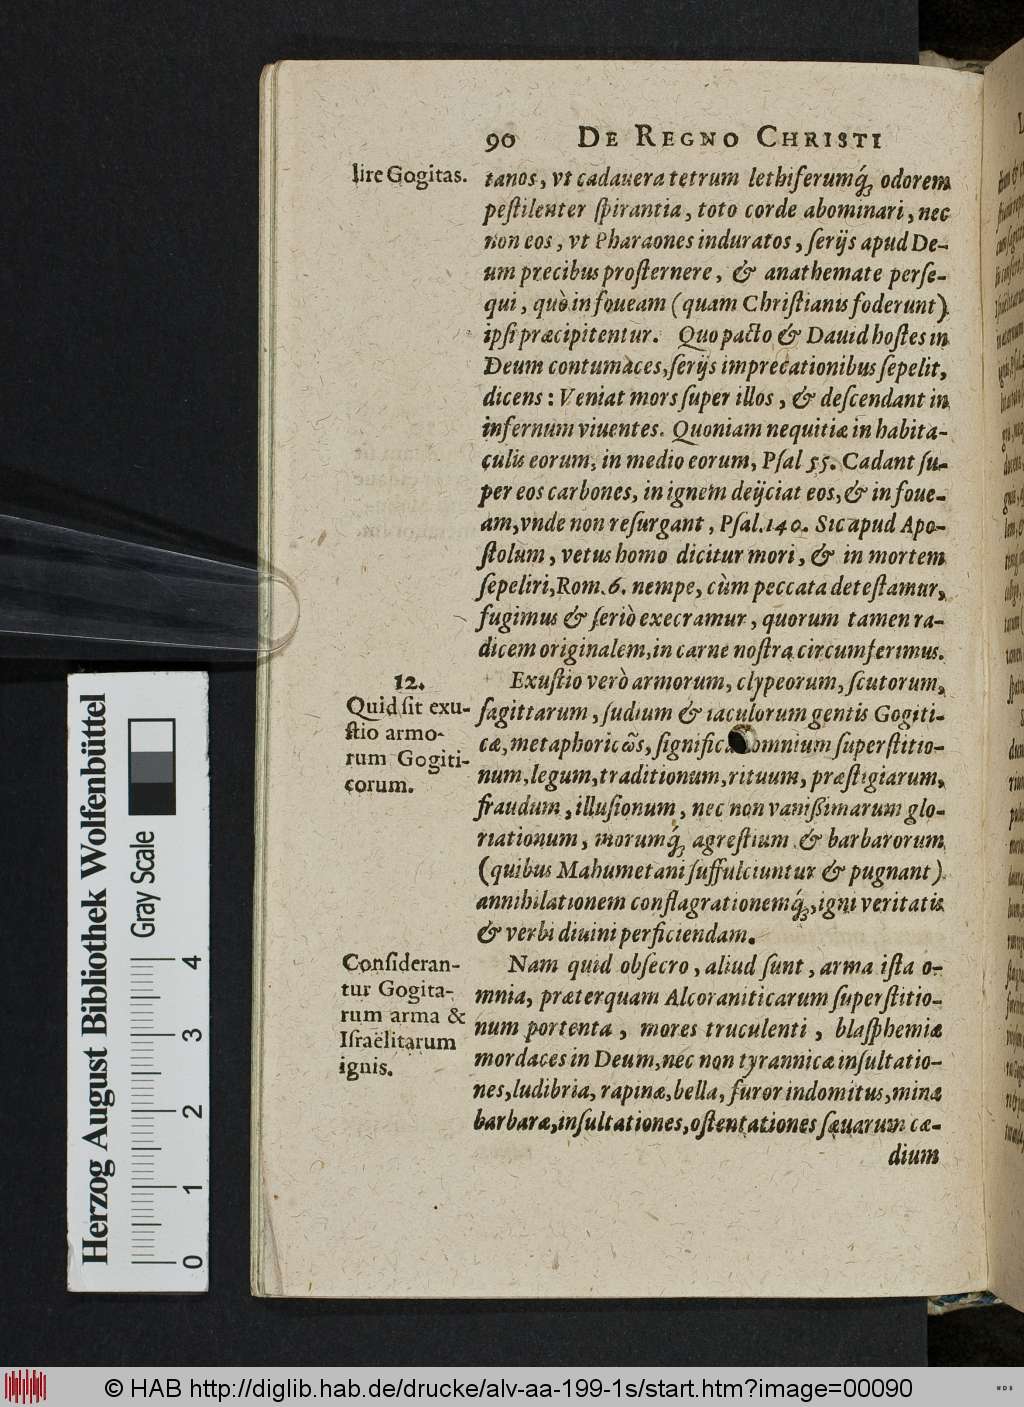 90 DE REGNO CHRISTI
lire Gogitas.
tanos, vt cadauera tetrum lethiferumq́; odorem
pestilenter spirantia, toto corde abominari, nec
non eos, vt Pharaones induratos, serijs apud De-
um precibus prosternere, & anathemate perse-
qui, quò in foueam (quam Christianis foderunt)
ipsi præcipitentur. Quo pacto & Dauid hostes in
Deum contumaces, serijs imprecationibus sepelit,
dicens: Veniat mors super illos, & descendant in
infernum viuentes. Quoniam nequitiæ in habita-
culis eorum, in medio eorum, Psal 55. Cadant su-
per eos carbones, in ignem deijciat eos, & in foue-
am, vnde non resurgant, Psal. 140. Sic apud Apo-
stolum, vetus homo dicitur mori, & in mortem
sepeliri, Rom. 6. nempe, cùm peccata detestamur,
fugimus & seriò execramur, quorum tamen ra-
dicem originalem, in carne nostra circumferimus.
12.
Quid sit exu-
stio armo-
rum Gogiti-
corum.
Exustio verò armorum, clypeorum, scutorum,
sagittarum, sudium & iaculorum gentis Gogiti-
cæ, metaphoricω̃s, signific omnium superstitio-
num, legum, traditionum, rituum, præstigiarum,
fraudum, illusionum, nec non vanißimarum glo-
riationum, morumq́; agrestium & barbarorum
(quibus Mahumetani suffulciuntur & pugnant)
annihilationem conflagrationemq́;, igni veritatis
& verbi diuini perficiendam.
Consideran-
tur Gogita-
rum arma &
Israëlitarum
ignis.
Nam quid obsecro, aliud sunt, arma ista o-
mnia, præterquam Alcoraniticarum superstitio-
num portenta, mores truculenti, blasphemiæ
mordaces in Deum, nec non tyrannicæ insultatio-
nes, ludibria, rapinæ, bella, furor indomitus, minæ
barbaræ, insultationes, ostentationes sæuarum cæ-
dium
Herzog August Bibliothek Wolfenbüttel
Gray Scale
0 1 2 3 4
© HAB http://diglib.hab.de/drucke/alv-aa-199-1s/start.htm?image=00090